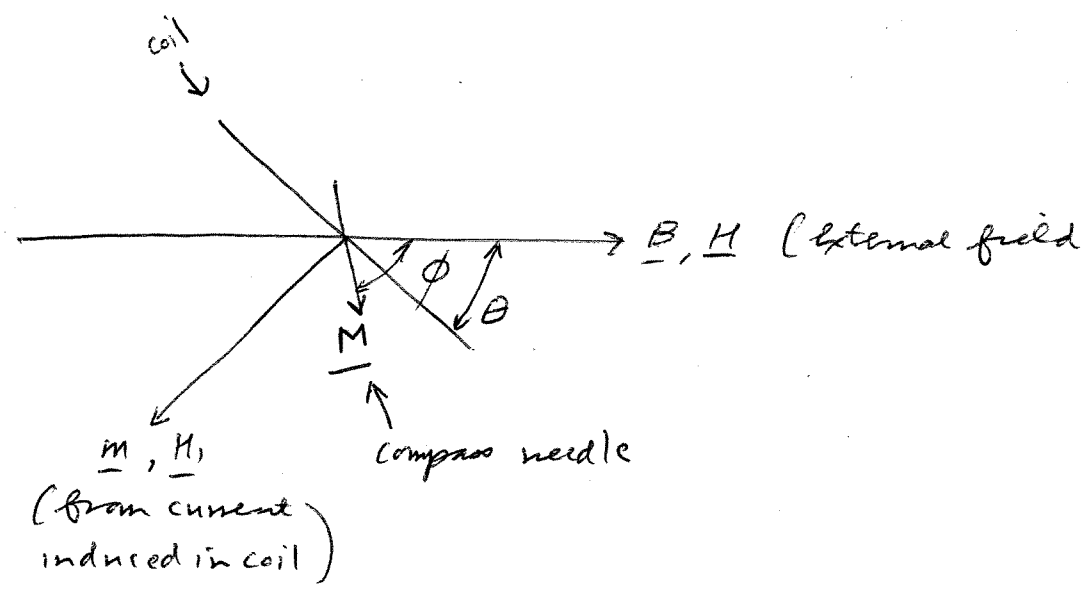 coil
B, H (external field
ϕ
θ
M
m, H,
compass needle
(from current
induced in coil)